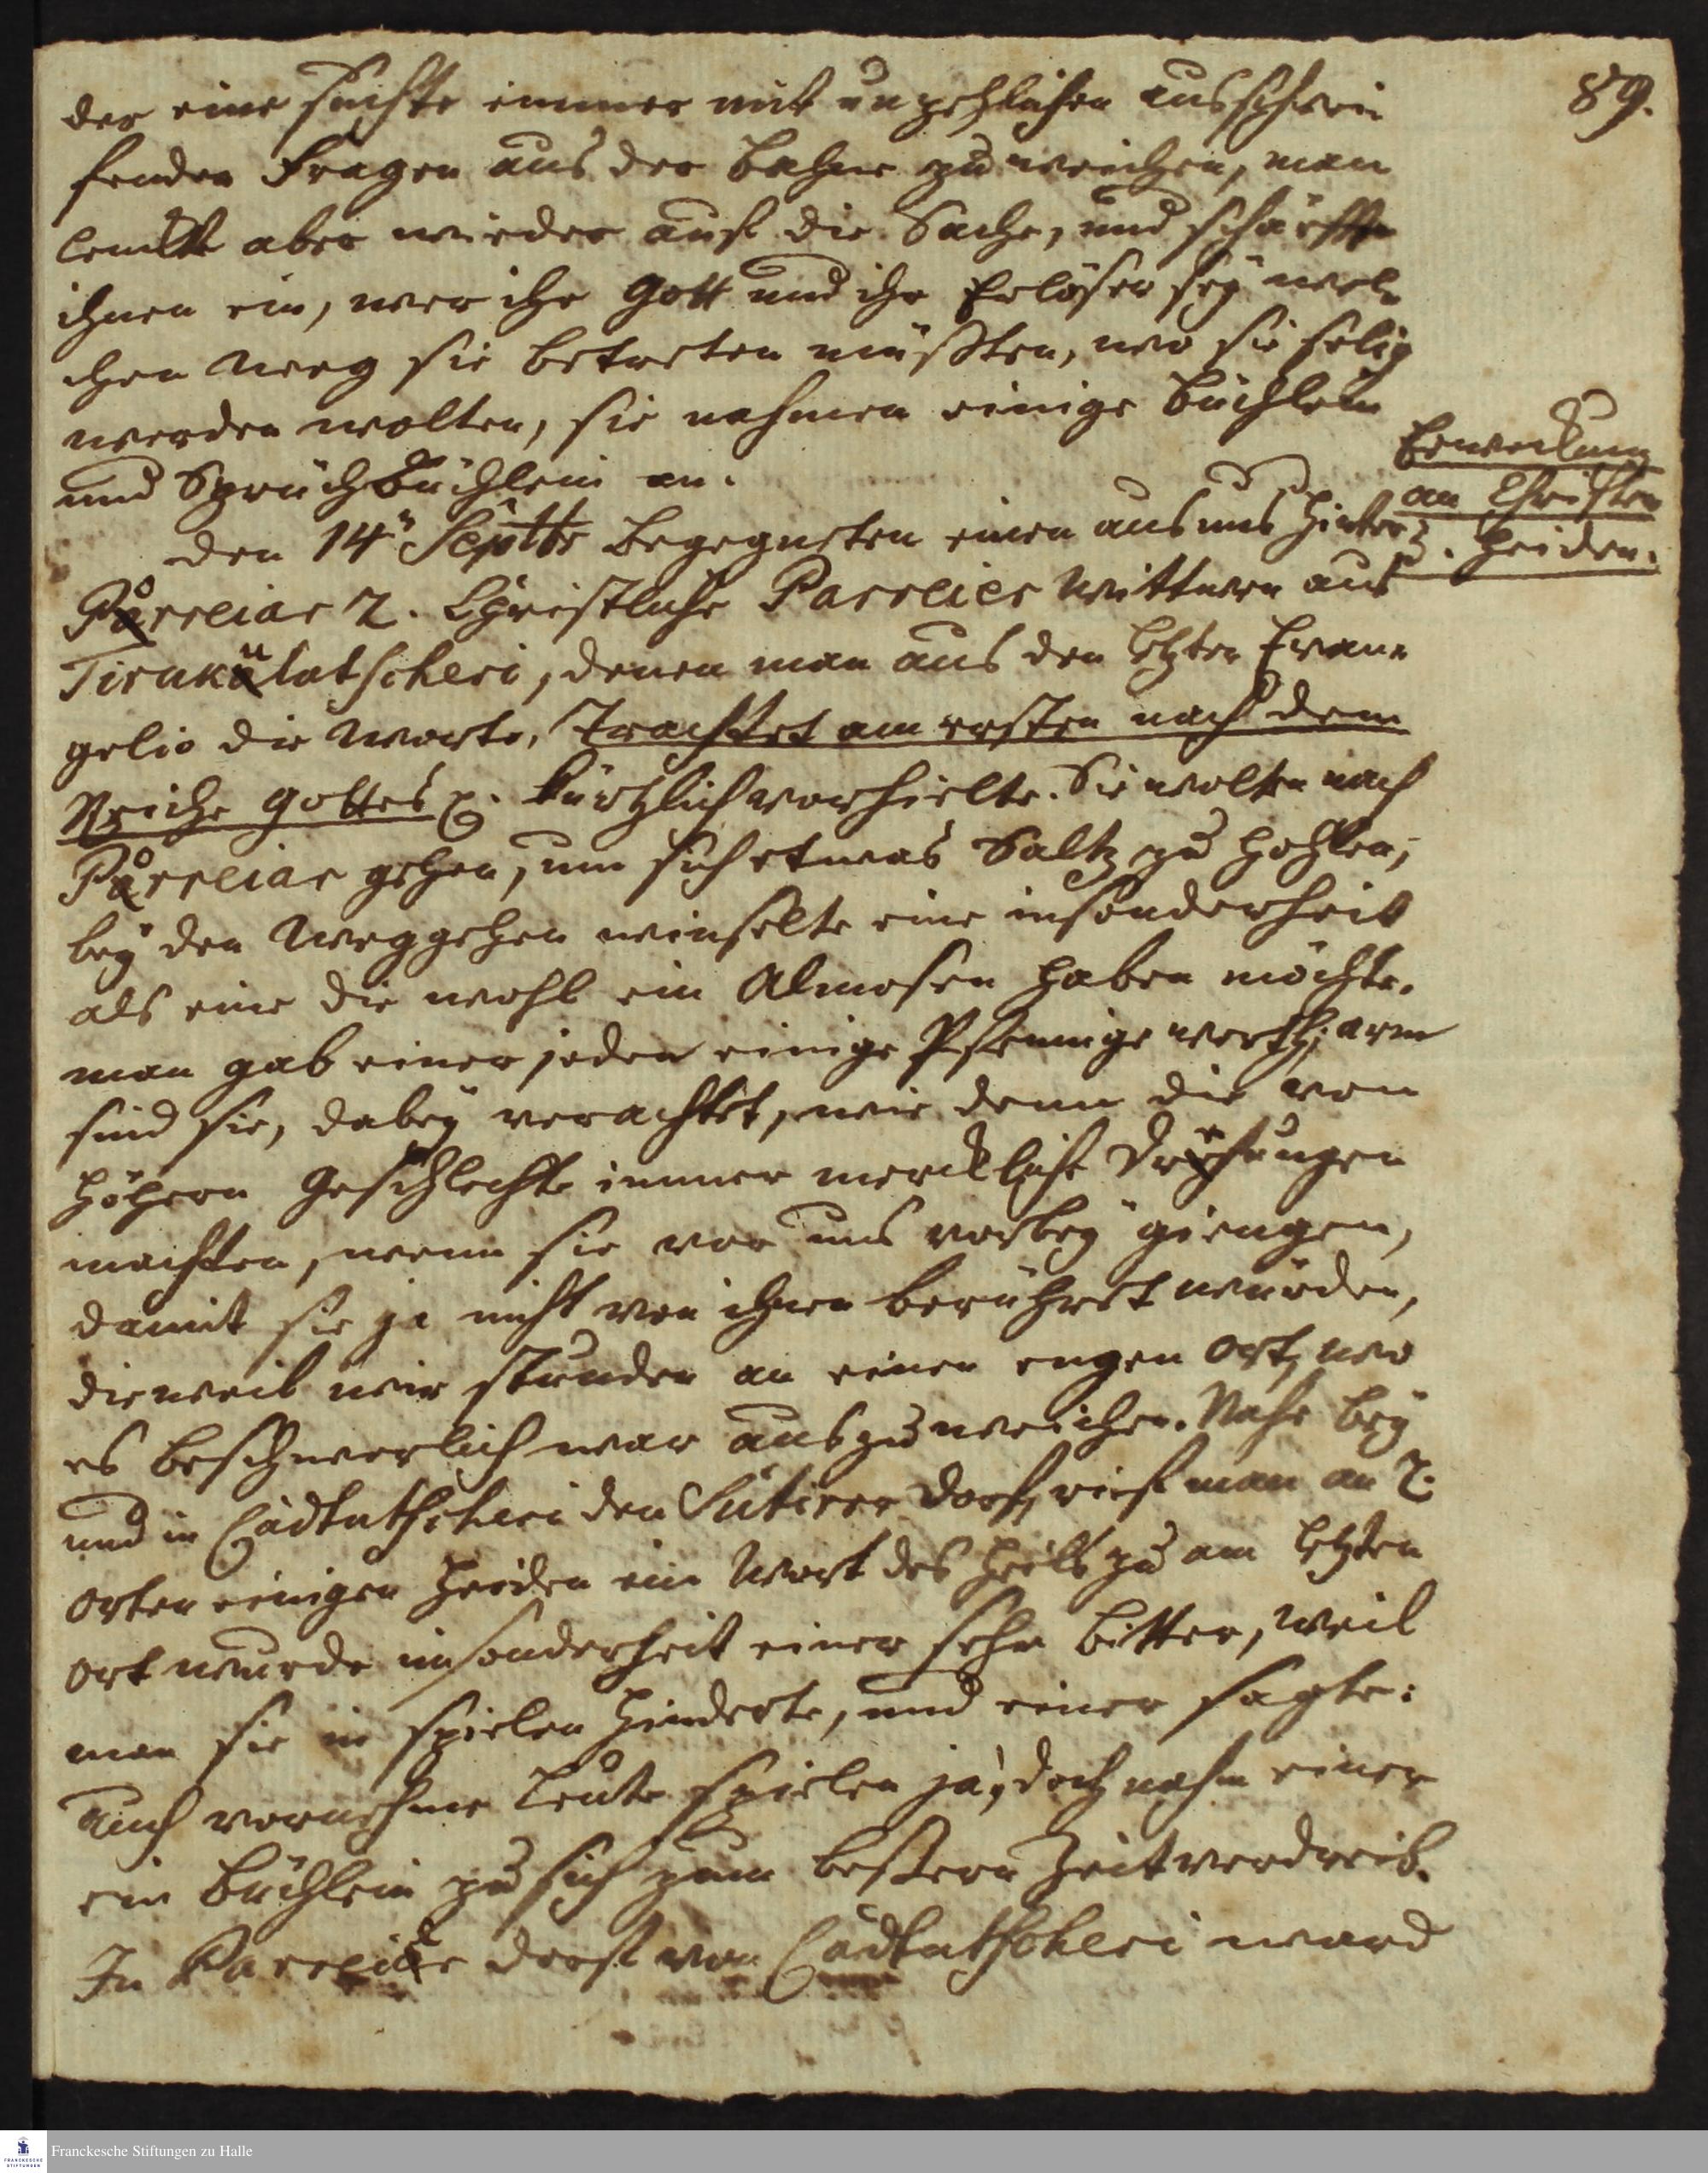 89.
der eine suchte immer mit unzehlichen ausschwei
fenden Fragen aus der Bahne zu weichen, man
lenckte aber wieder auf die Sache, und schärffte
ihnen ein, wer ihr Gott und ihr Erlöser sey wel-
chen Weg sie betreten müsten, wo sie selig
werden wolten, sie nahmen einige Büchlein
und Spruchbüchlein an.
Erweckung
an Christen
u. Heiden.
Den 14n Septbr begegneten einen aus uns hinter
Porreiar 2. Christliche Parreier Wittwen aus
Tirukulatscheri, denen man aus den letzten Evan-
gelio die Worte, Trachtet am ersten nach dem
Reiche Gottes p. kürtzlich vorhielte. Sie wolten nach
Porreiar gehen, um sich etwas Saltz zu hohlen,
bey den Weggehen winselte eine insonderheit
als eine die wohl ein Almosen haben möchte.
man gab einer jeden einige Pfennige werth, arm
sind sie, dabey verachtet, wie denn die von
höhern Geschlechte immer merckliche Drehungen
machten, wenn sie vor uns vorbey giengen,
damit sie ja nicht von ihnen berühret würden,
dieweil wir stunden an einen engen Ort, wo
es beschwerlich war auszuweichen. Nahe bey
und in Cadtutscheri den Sutirer Dorf, rief man an 2.
Orten einigen Heiden ein Wort des Heils zu am letzten
Ort wurde insonderheit einer sehr bitter, weil
man sie in spielen hinderte, und einer sagte:
Auch vornehme Leute spielen ja, doch nahm einer
ein Büchlein zu sich zum bessern Zeitverdreib.
In Parreier Dorf von Cadtutscheri ward
Franckesche Stiftungen zu Halle
FRANCKESCHE
STIFTUNGEN